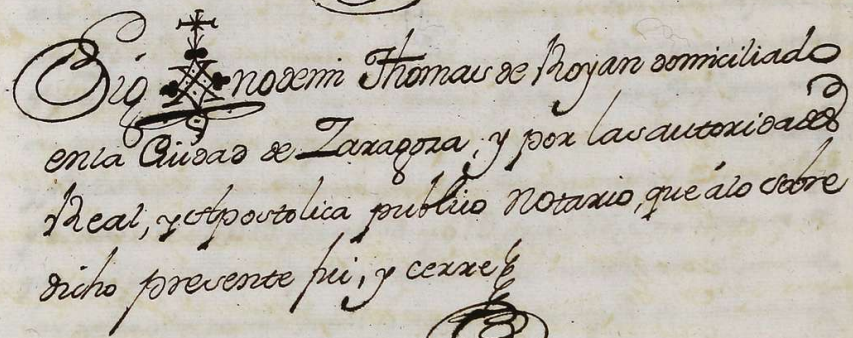 Sig no de mi Thomas de Royan domiciliado
en la Ciudad de Zaragoza, y por las autoridades
Real, y Apostolica publico Notario, que á lo sobre
dicho presente fui, y cerre